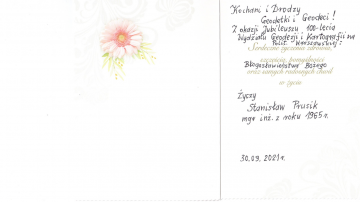 Kochani i Drodzy
Geodetki i Geodeci!
Z okazji Jubileuszu 100-lecia
Wydziału Geodezji i Kartografii na
Polit. Warszawskiej
Serdeczne życzenia zdrowia,
szczęścia, pomyślności
Błogosławieństwa Bożego
oraz samych radosnych chwil
w życiu
Życzy
Stanisław Prusik
mgr inż. z roku 1965 r.
30.09.2021 r.